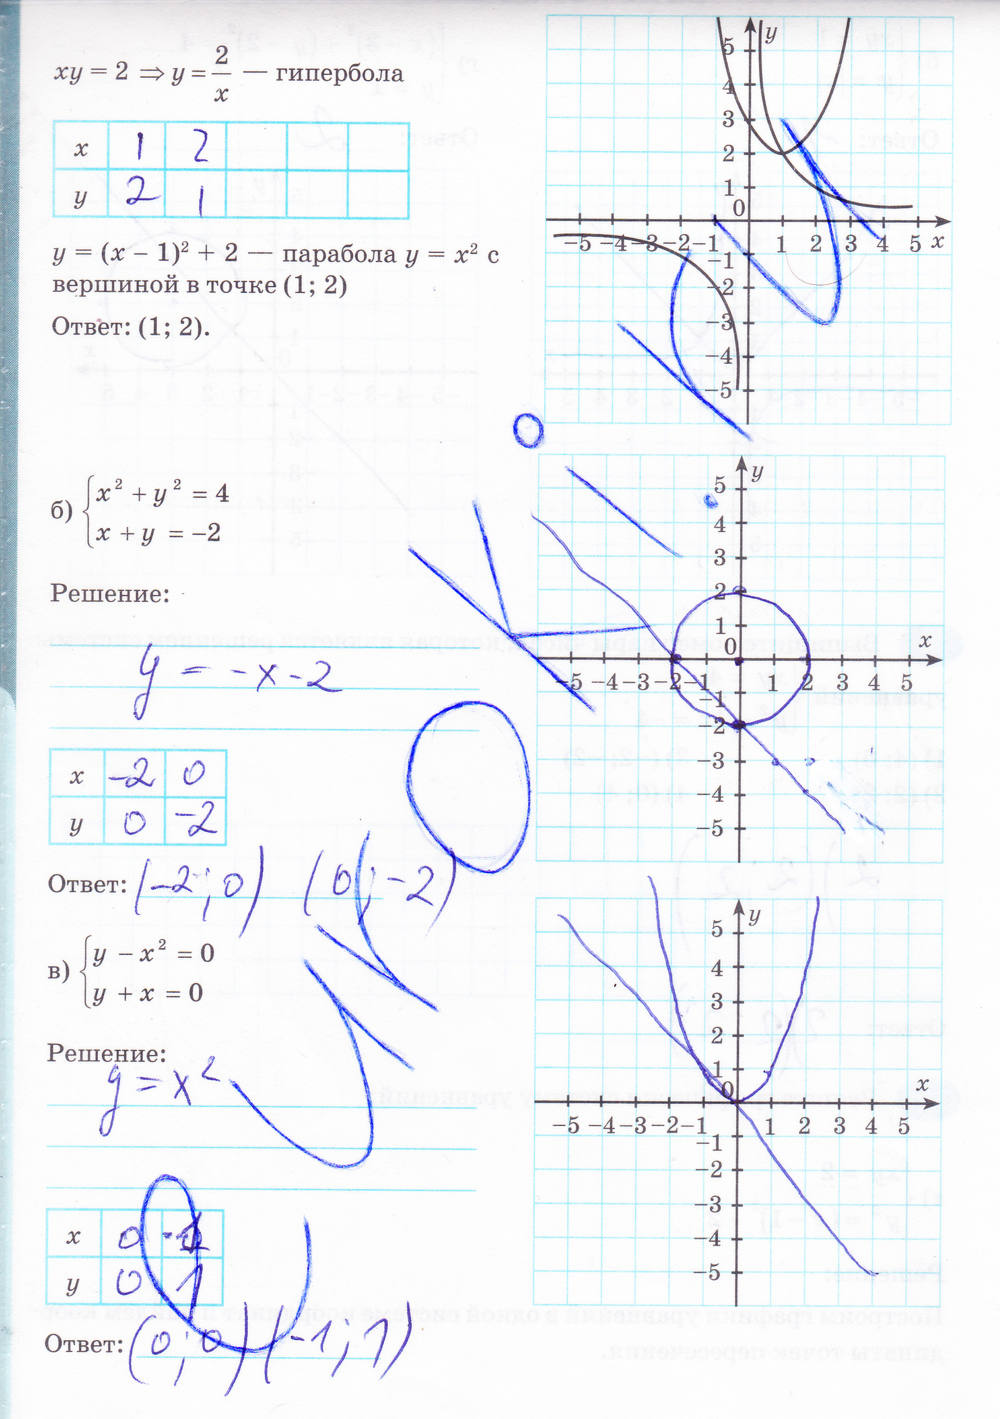 xy = 2 ⇒ y = 2/x — гипербола
x 1 2
y 2 1
y = (x – 1)² + 2 — парабола y = x² с
вершиной в точке (1; 2)
Ответ: (1; 2).
y
5
4
3
2
1
0
–5 –4 –3 –2 –1 1 2 3 4 5 x
–1
–2
–3
–4
–5
б) { x² + y² = 4
x + y = –2
Решение:
y = -x-2
x -2 0
y 0 -2
Ответ: (-2; 0) (0; -2)
y
5
4
3
2
1
0
x
–5 –4 –3 –2 –1 1 2 3 4 5
–1
–2
–3
–4
–5
в) { y – x² = 0
y + x = 0
Решение:
y = x²
x 0 -1
y 0 1
Ответ: (0; 0) (-1; 1)
y
5
4
3
2
1
0
x
–5 –4 –3 –2 –1 1 2 3 4 5
–1
–2
–3
–4
–5